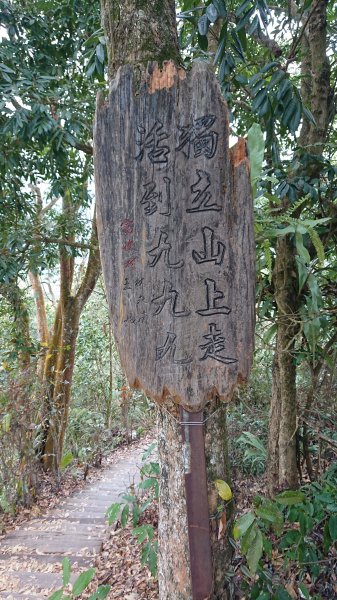 獨立山上走
活到九九九